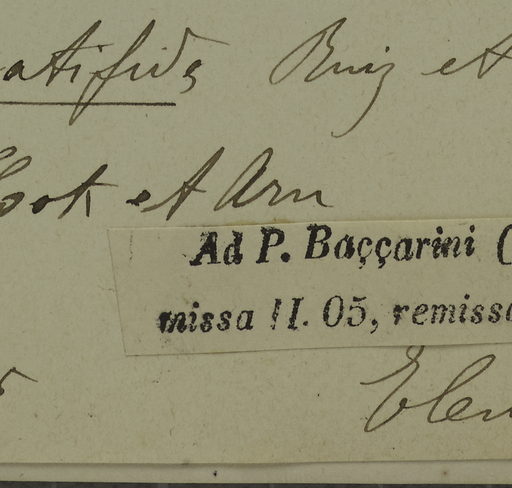 atifida Ruiz et
Hook et Arn
Ad P. Baççarini (
missa II. 05, remissa
Elem